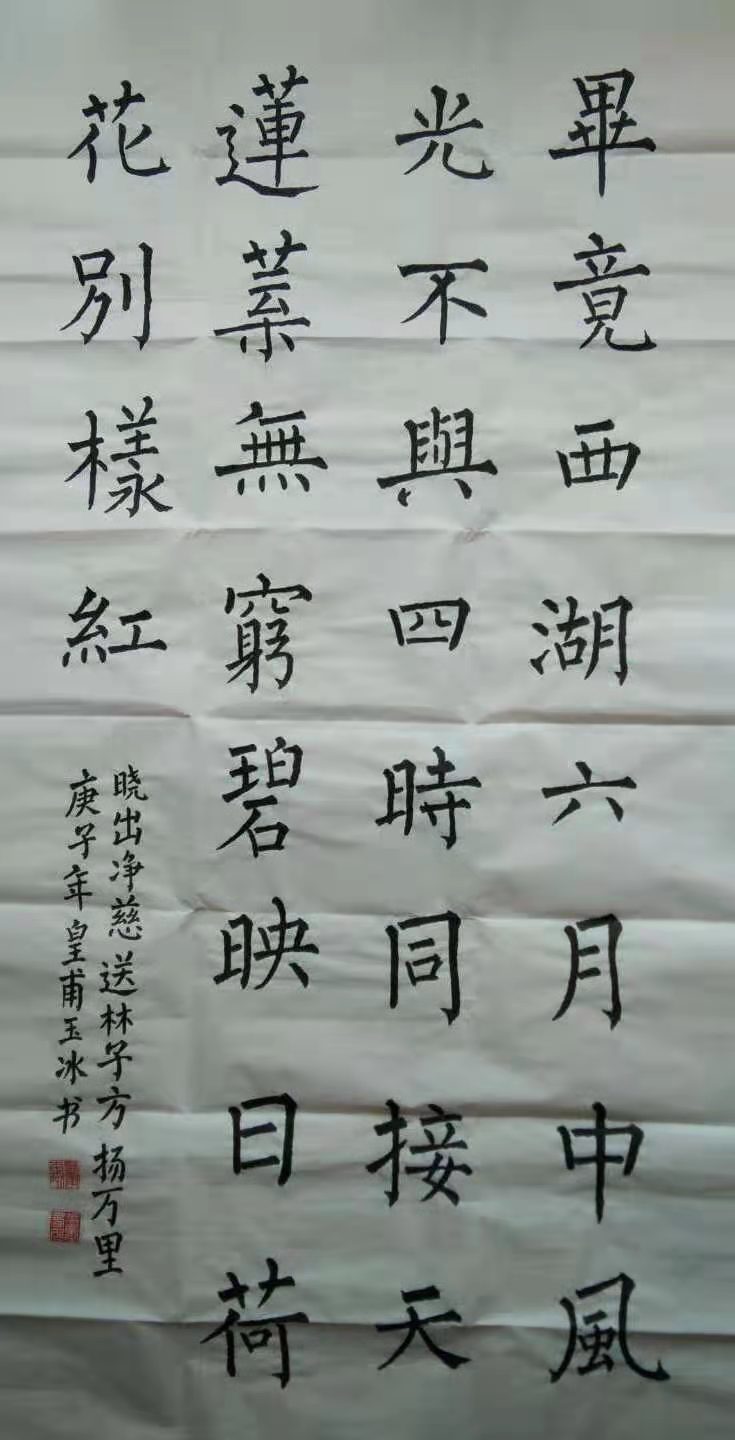 畢竟西湖六月中風
光不與四時同接天
蓮葉無窮碧映日荷
花別樣紅
晓出净慈送林子方 扬万里
庚子年皇甫玉冰书